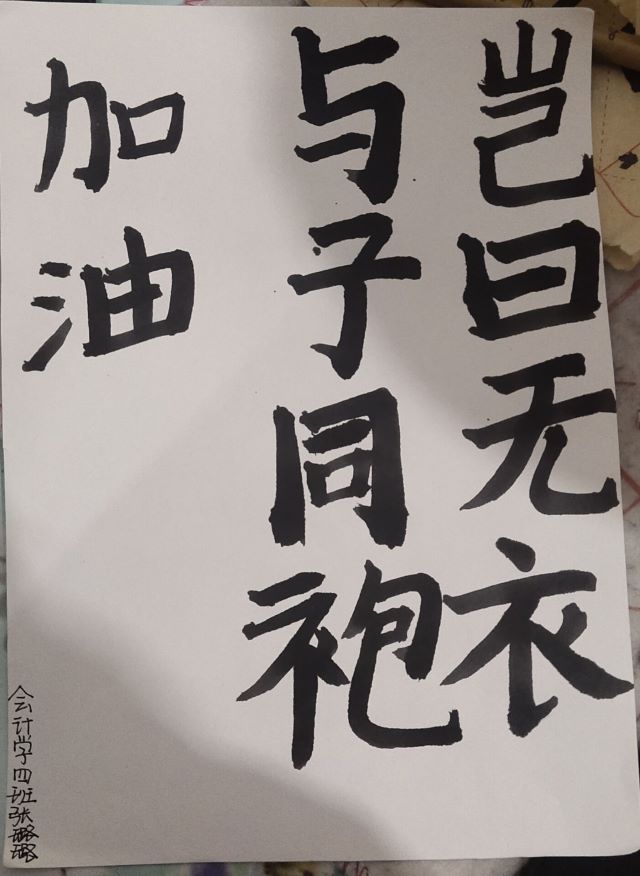 岂曰无衣
与子同袍
加油
会计学四班张璐璐